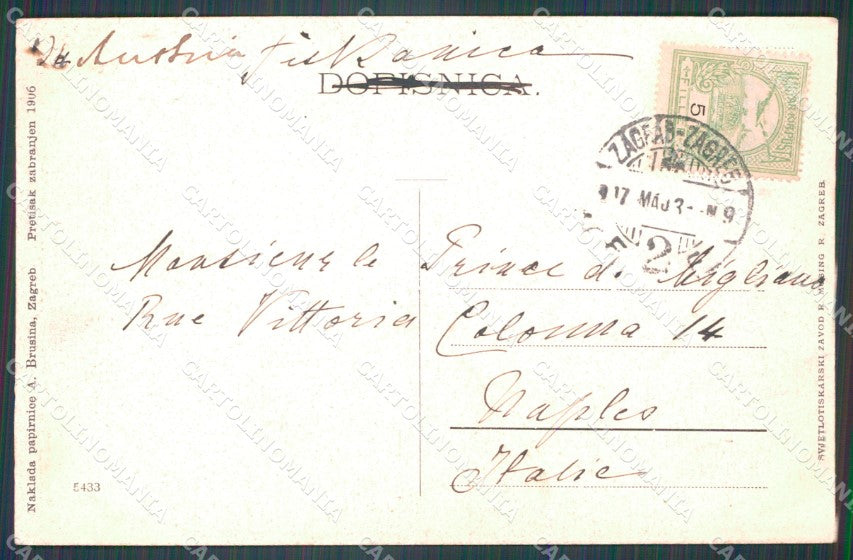 Austria
DOPISNICA.
5
ZAGRAB-ZAGREB
917 MAJ 3
N 9
2
Monsieur le Prince de Migliano
Rue Vittoria Colonna 14
Naples
Italie
5433
Naklada papirnice A. Brusina, Zagreb Pretisak zabranjen 1906
SVJETLOTISKARSKI ZAVOD R. MOSING R. ZAGREB.
CARTOLINOMANIA